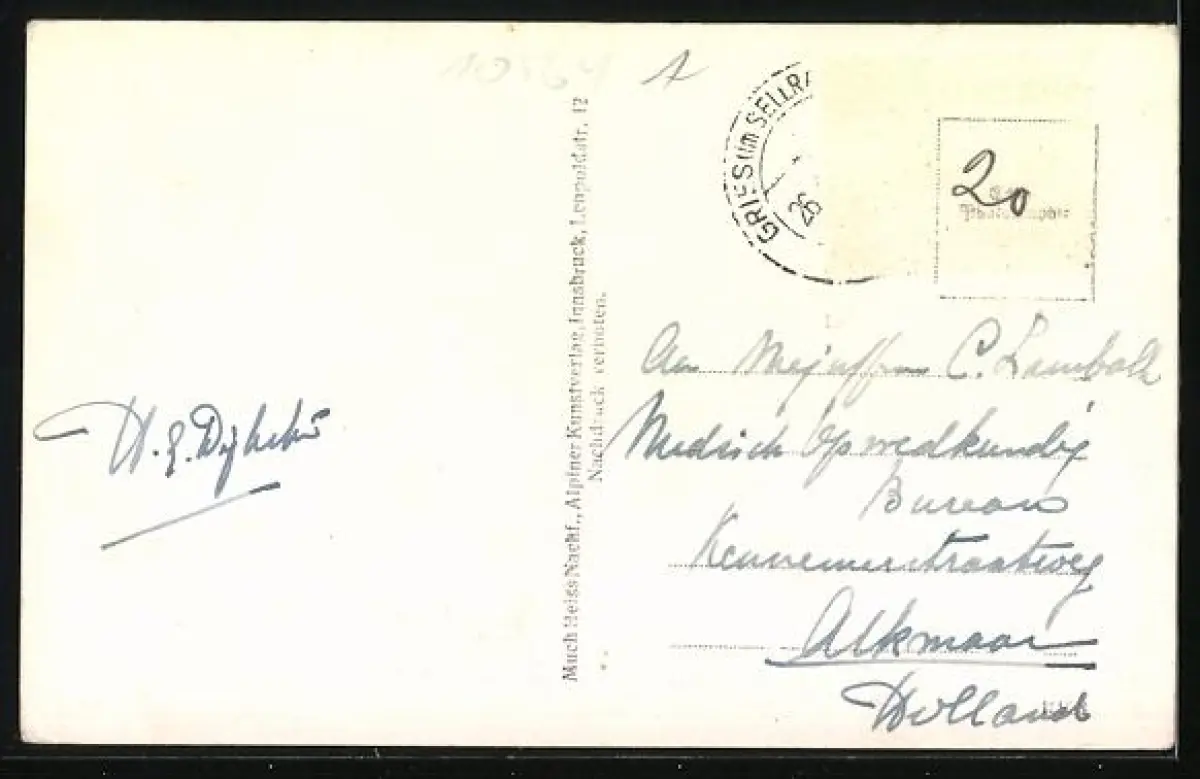 A
GRIES im SELLRA
26
20
Much Heiss Nachf., Alpiner Kunstverlag, Innsbruck, Leopoldstr. 12
Nachdruck verboten.
Aan Mejuffrouw C.
Medisch Opvoedkundig
Bureau
Kennemerstraatweg
Alkmaar
Holland
H.